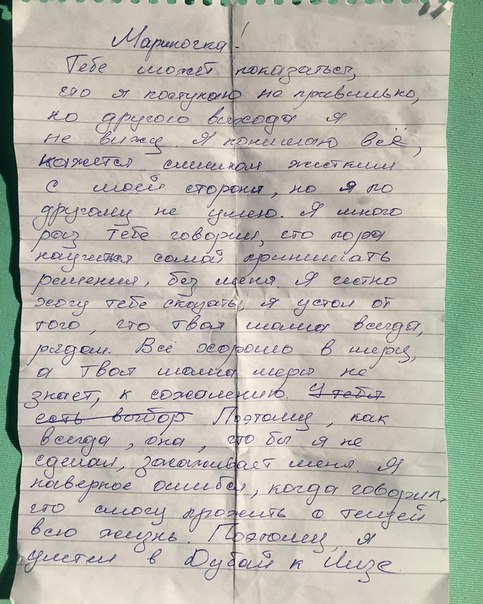 Мариночка!
Тебе может показаться,
что я поступаю не правильно,
но другого выхода я
не вижу. Я понимаю всё,
кажется слишком жестким
с моей стороны, но я по
другому не умею. Я много
раз тебе говорил, что пора
научится самой принимать
решения, без меня. Я честно
хочу тебе сказать, я устал от
того, что твоя мама всегда,
рядом. Всё хорошо в меру,
а твоя мама меры не
знает, к сожалению. У тебя
есть выбор Поэтому, как
всегда, она, что бы я не
сделал, захаживает меня. Я
наверное ошибся, когда говорил,
что смогу прожить с тещей
всю жизнь. Поэтому, я
улетел в Дубай к Лизе.